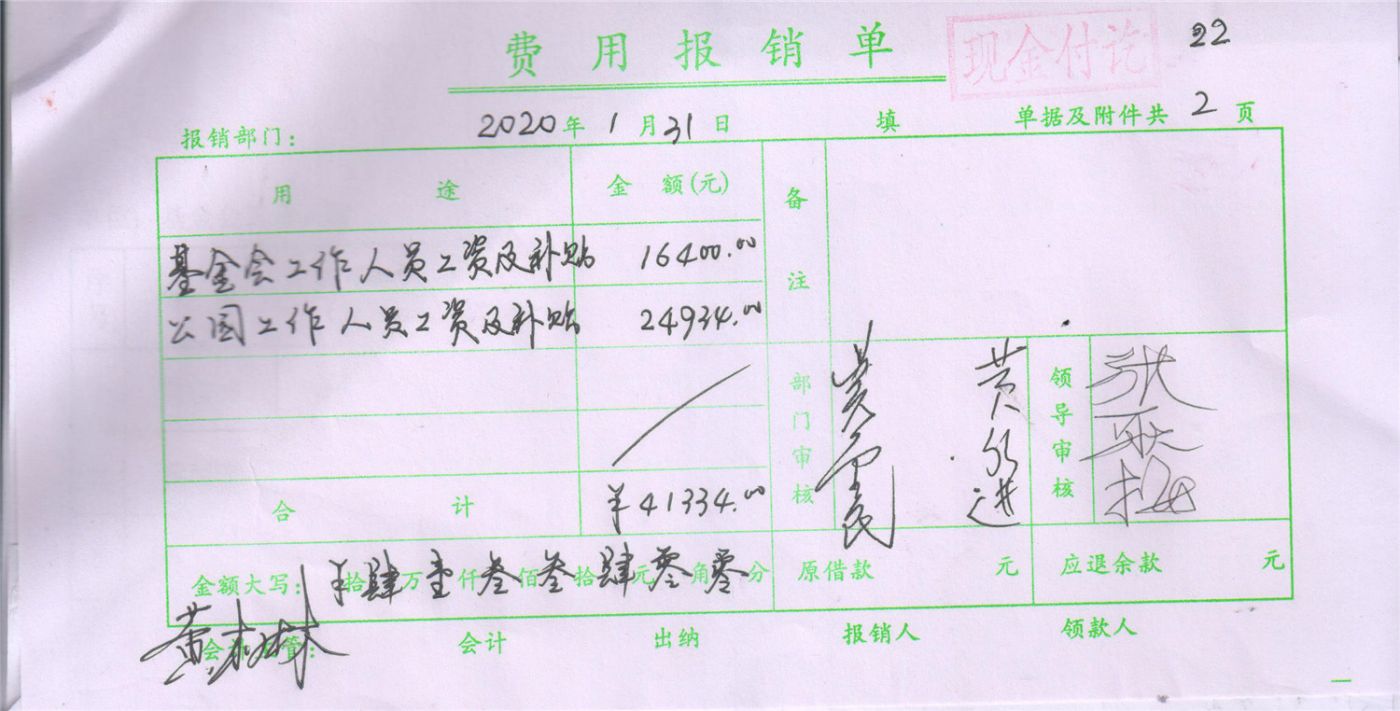 费用报销单 现金付讫 22
报销部门： 2020年1月31日 填 单据及附件共2页
用途 金额(元) 备注
基金会工作人员工资及补贴 16400.00
公园工作人员工资及补贴 24934.00
合计 ¥41334.00
部门审核 领导审核
金额大写：¥拾肆万壹仟叁佰叁拾肆元零角零分 原借款 元 应退余款 元
会计主管： 会计 出纳 报销人 领款人